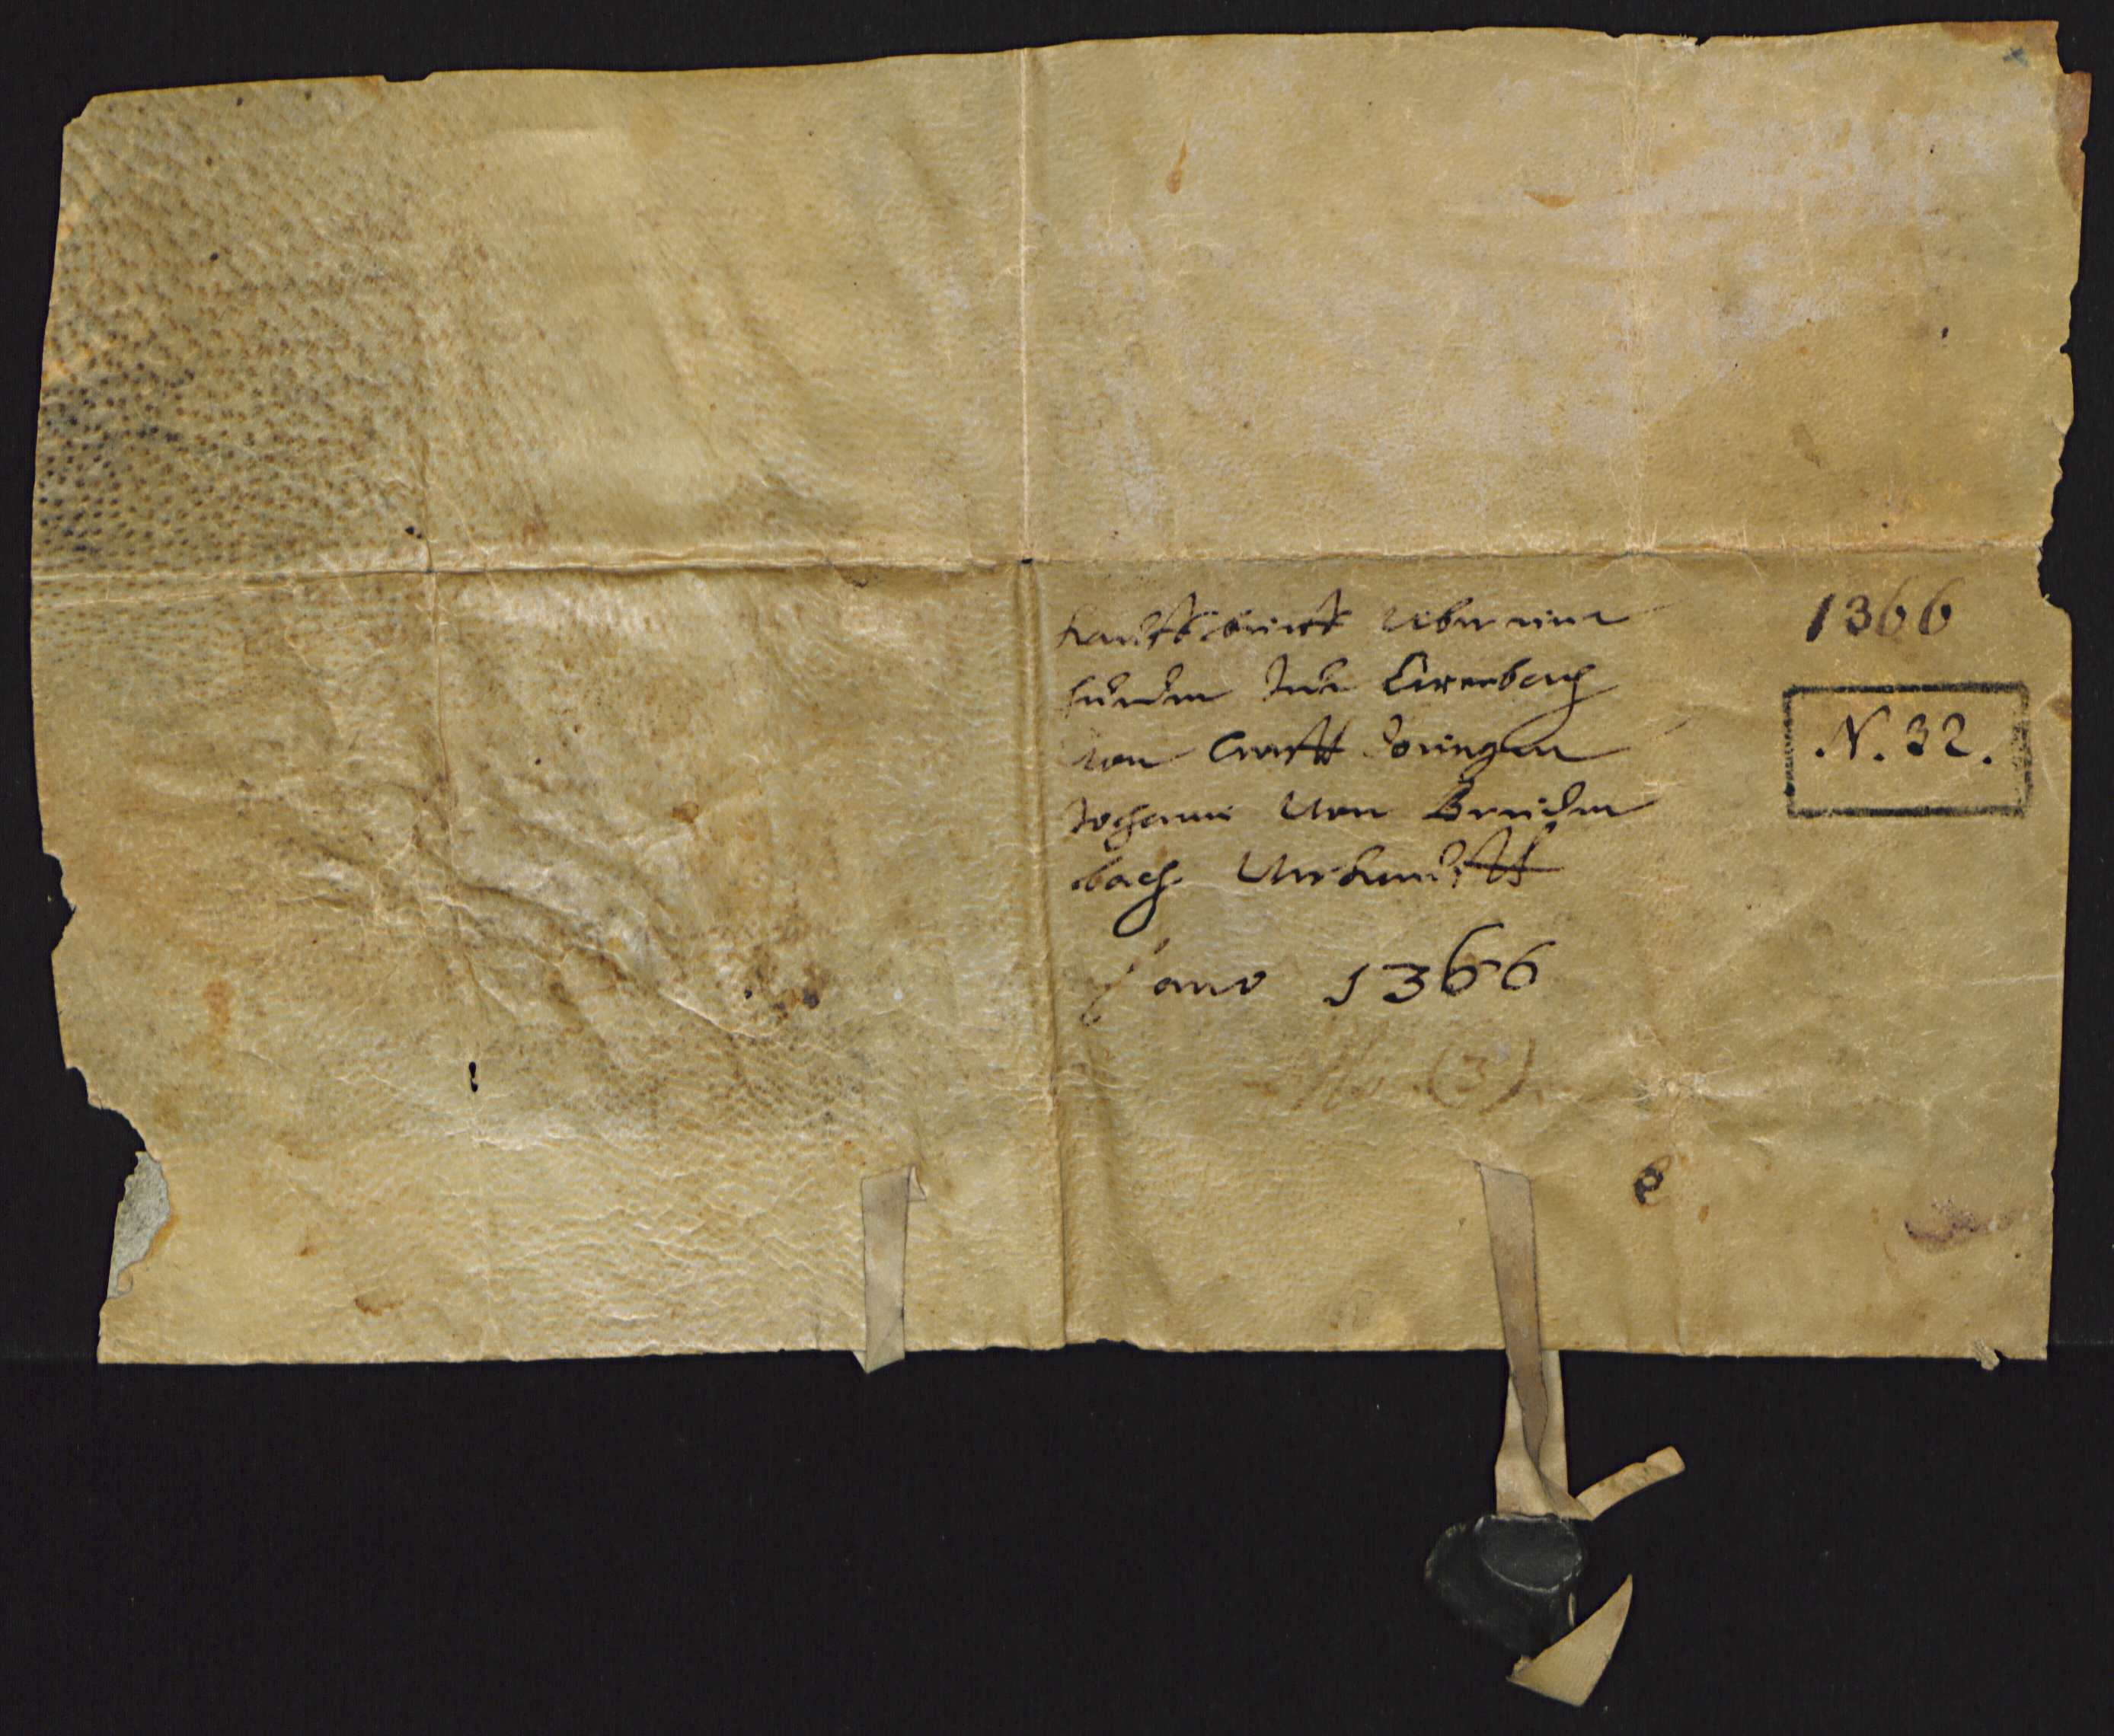 Kauffbrieff Uber eine
hueben zue Larenbach
von Crafft Döringen
Johanni von Breiden
bach Verkaufft
anno 1366
No. (3).
1366
N. 32.